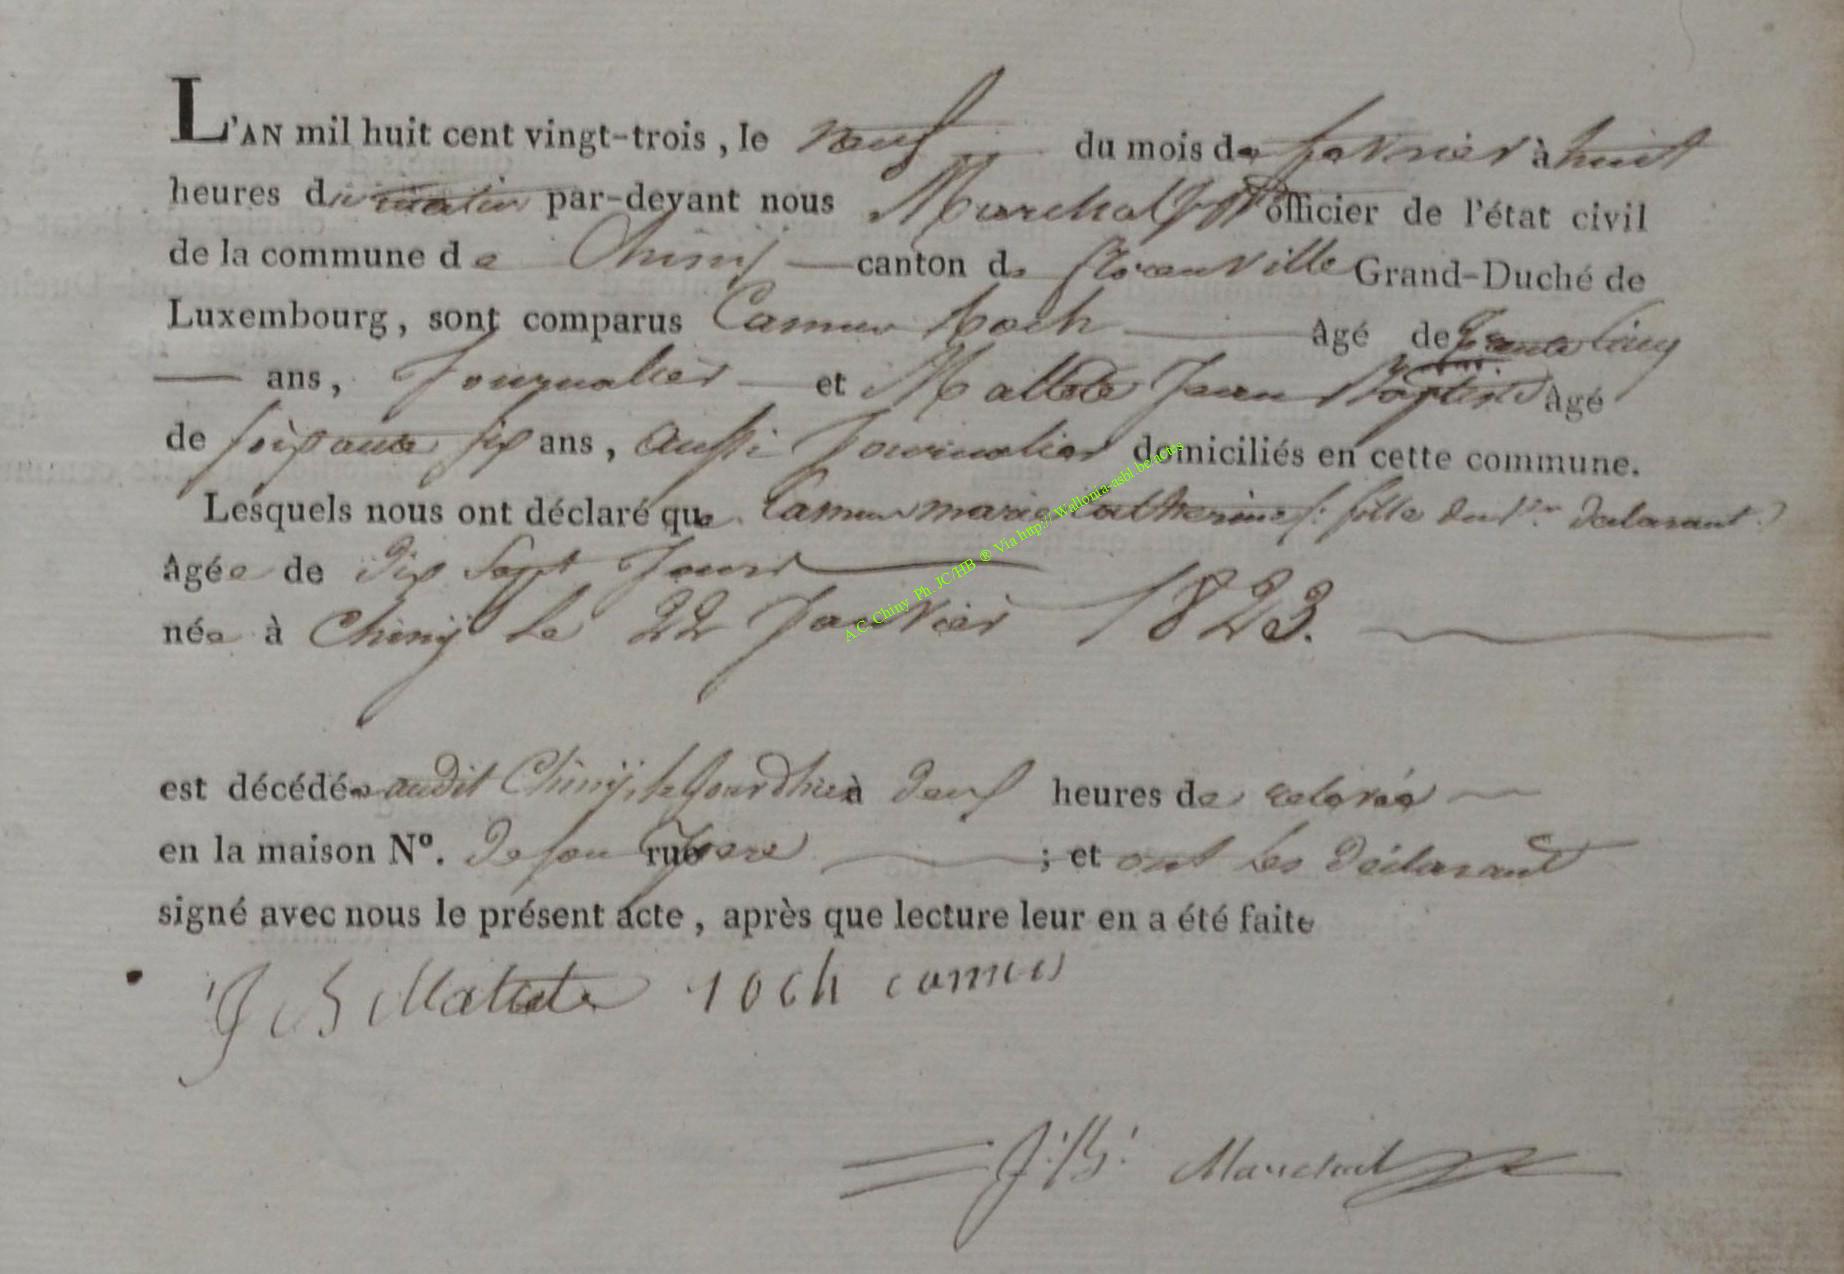 L'AN mil huit cent vingt-trois, le neuf du mois de fevrier à huit
heures du matin par-devant nous Marchal officier de l'état civil
de la commune de Chiny canton de florenville Grand-Duché de
Luxembourg, sont comparus Camus Roch âgé de trente cinq
ans, Journalier et Jean Baptiste âgé
de soixante six ans, aussi Journalier domiciliés en cette commune.
Lesquels nous ont déclaré que Camus marie Catherine fille du 1er declarant
âgée de dix Sept Jours
née à Chiny le 22 Janvier 1823.
est décédée audit Chiny, le Jourdhier à deux heures de relevée
en la maison N°. de son rue pere ; et ont les déclarant
signé avec nous le présent acte, après que lecture leur en a été faite
roch camus
J: B: Marchal
A.C. Chiny Ph. JC/HB ® Via http://Wallonia-asbl be actes